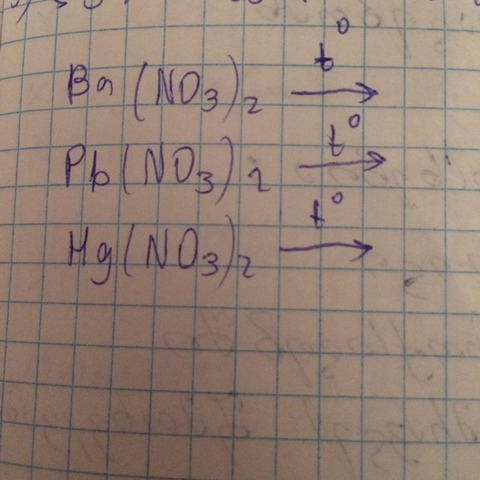 Ba(NO₃)₂ —t°→
Pb(NO₃)₂ —t°→
Hg(NO₃)₂ —t°→